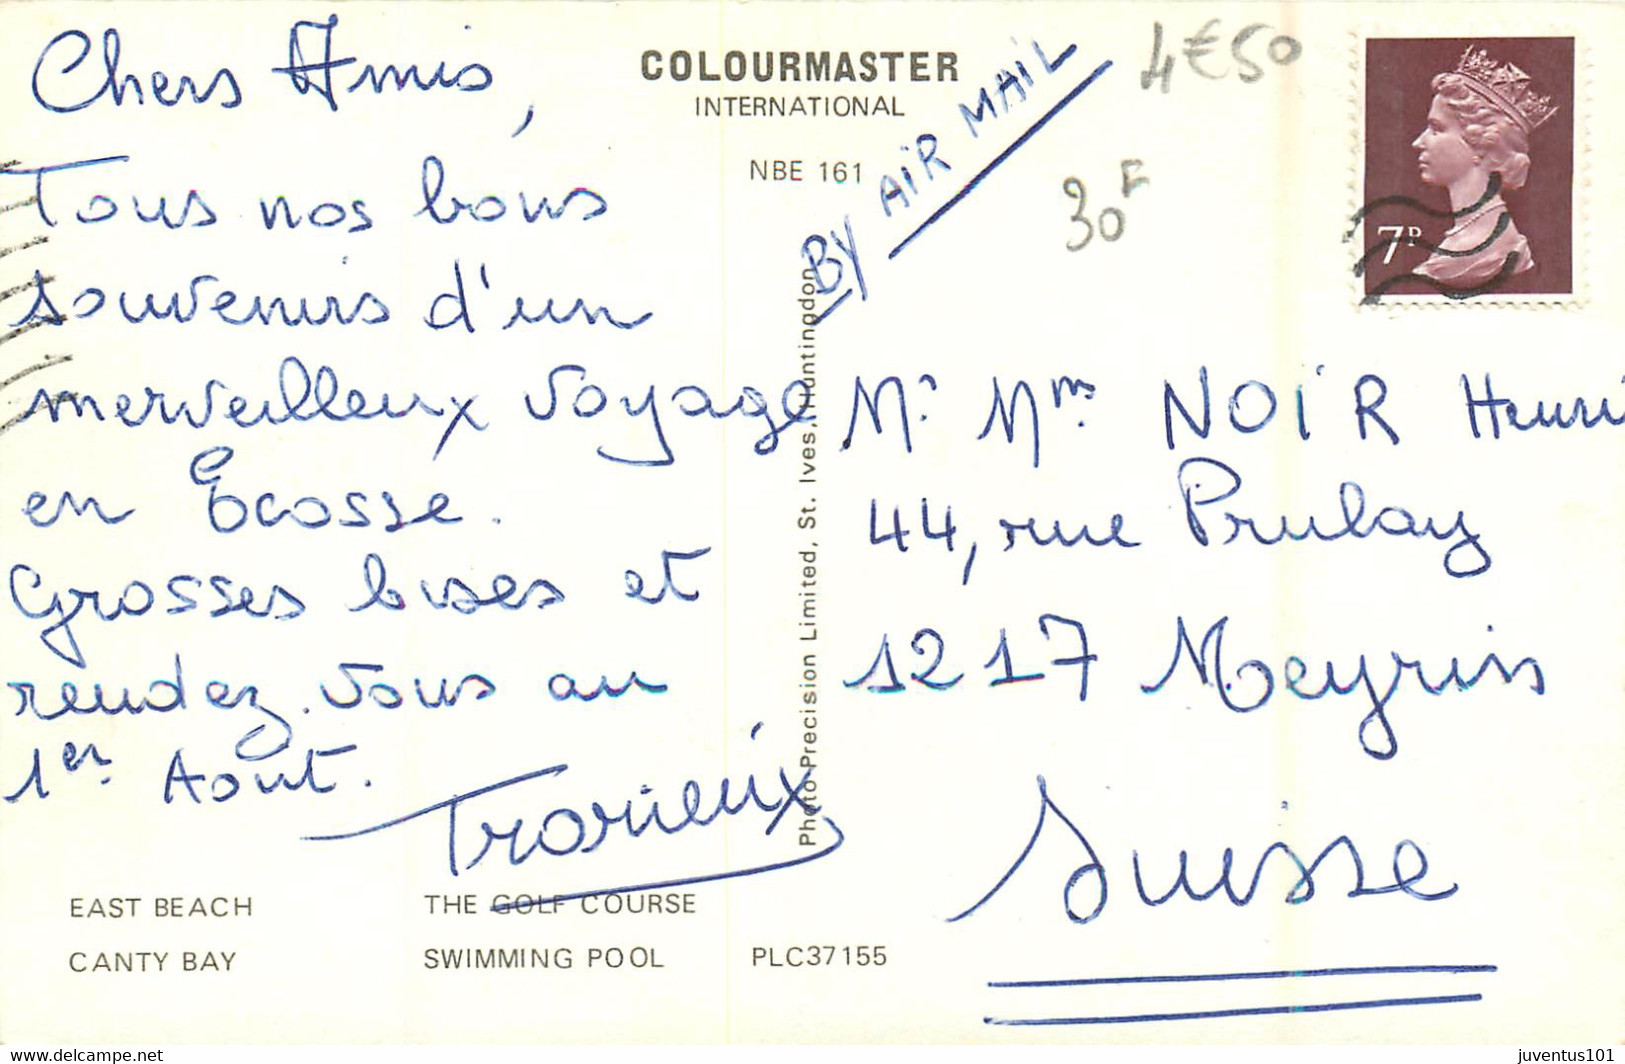 Chers Amis,
Tous nos bons
souvenirs d'un
merveilleux voyage
en Écosse.
Grosses bises et
rendez-vous au
1er Aout.
COLOURMASTER
INTERNATIONAL
NBE 161
BY AIR MAIL
4€50
30F
7P
Photo Precision Limited, St. Ives, Huntingdon
Mr Mme NOIR Henri
44, rue Prulay
1217 Meyrin
Suisse
EAST BEACH
THE GOLF COURSE
CANTY BAY
SWIMMING POOL
PLC37155
http://www.delcampe.net
juventus101